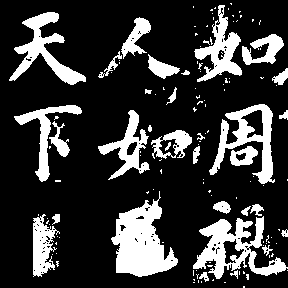 如周視
人如
天下